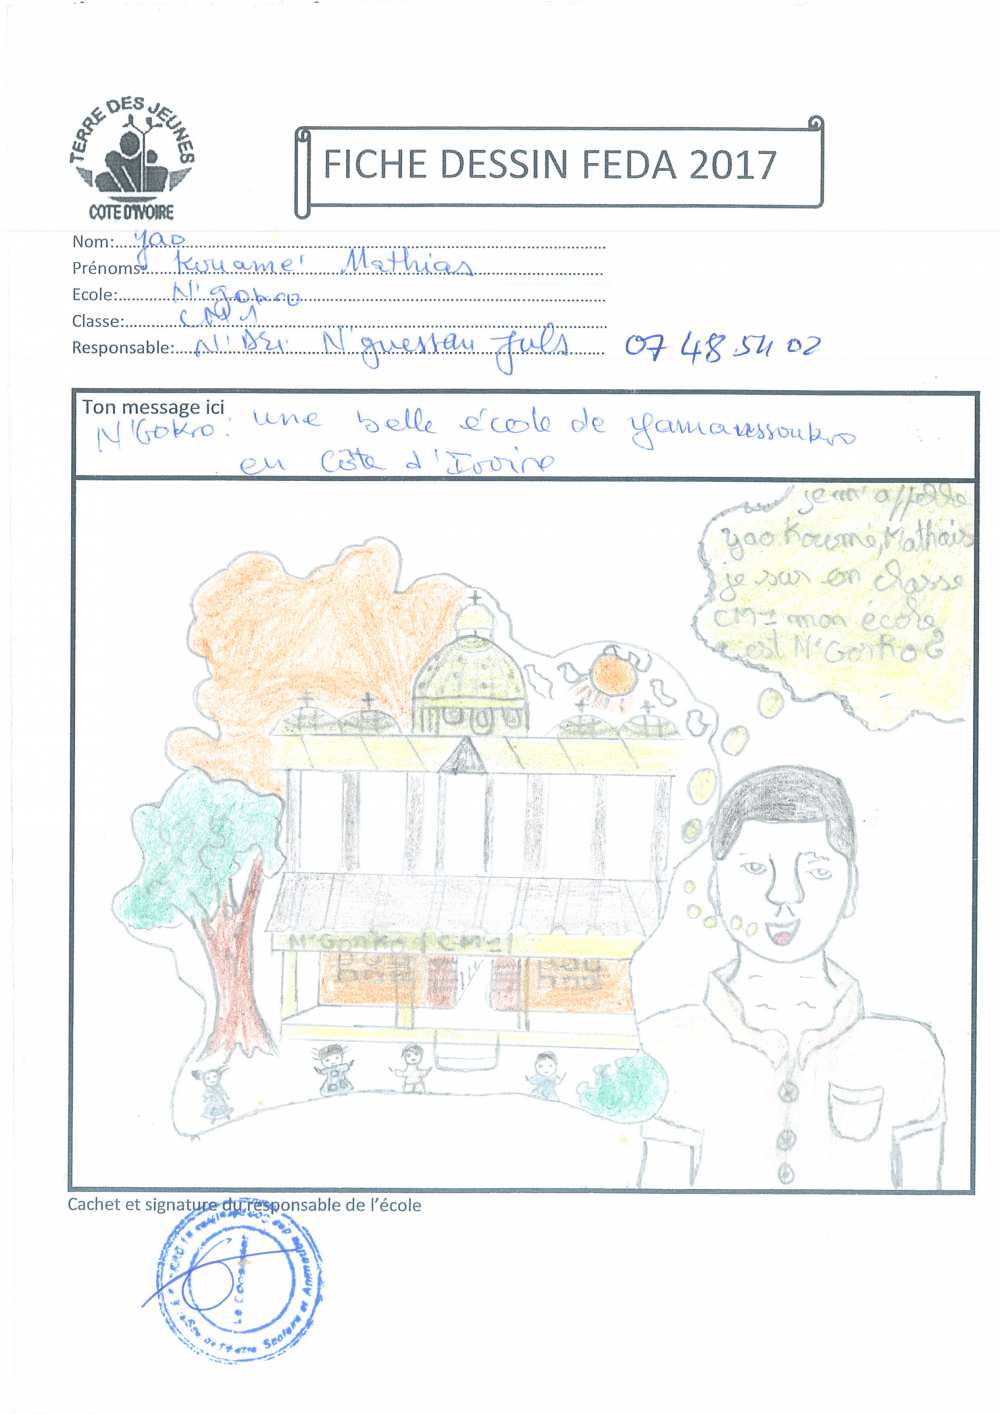 TERRE DES JEUNES
COTE D'IVOIRE
FICHE DESSIN FEDA 2017
Nom: Yao
Prénoms: Kouamé Mathias
Ecole: N'gokro
Classe: CM1
Responsable: N'Dri N'guessan Juls 07 48 54 02
Ton message ici
N'GOKRO: une belle école de yamoussoukro
en Côte d'Ivoire
je m'appelle
yao Koumé, Mathais
je sur en classe
CM1 mon école
est N'Gonko 2
N'Gonko CM1
Cachet et signature du responsable de l'école